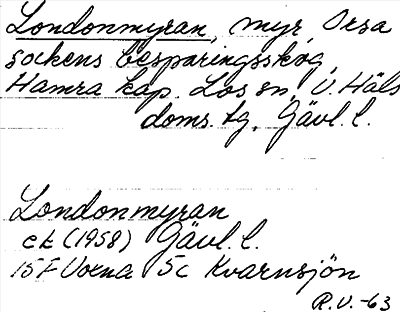 Londonmyran, myr, Orsa
sockens besparingsskog,
Hamra kap. Los sn, V. Häls
doms. tg, Gävl. l.
Londonmyran
ek (1958) Gävl. l.
15 F Voxna 5c Kvarnsjön
R.V. -63